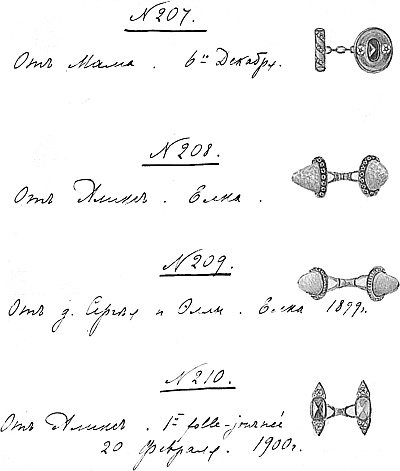 N 207.
Отъ Мама. 6го Декабря.
N 208.
Отъ Аликсъ. Елка.
N 209.
Отъ д. Сергѣя и Эллы. Елка 1899г.
N 210.
Отъ Аликсъ. 1re folle-journée
20 февраля. 1900г.